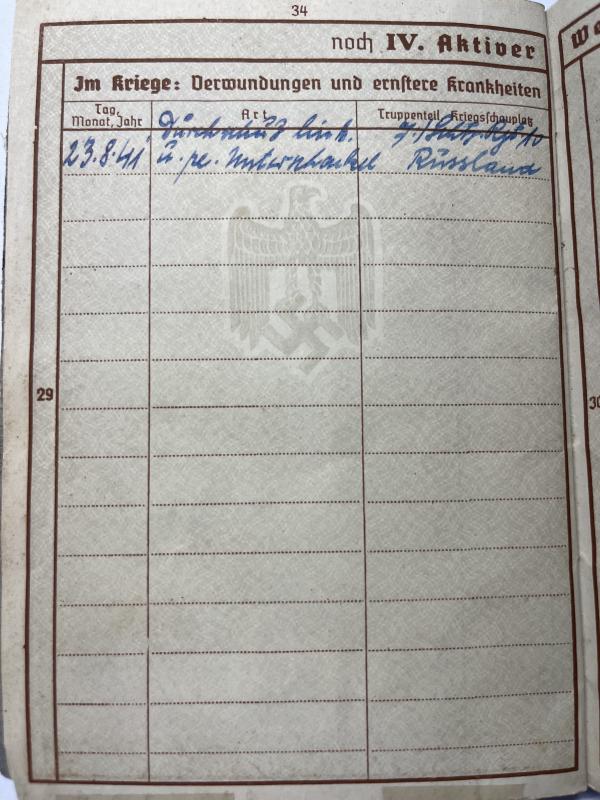 34
noch IV. Aktiver
We
Im Kriege: Verwundungen und ernstere Krankheiten
Tag, Monat, Jahr
Art
Truppenteil, Kriegsschauplatz
Durchschuß link.
23.8.41 u. re. Unterschenkel Russland
29
30